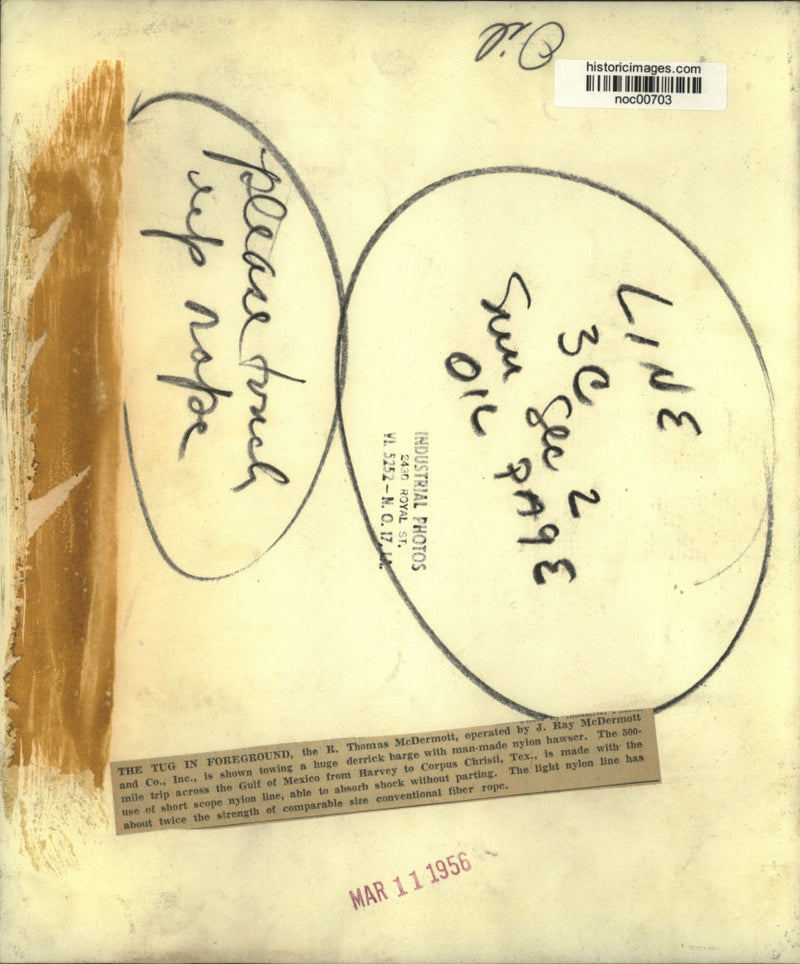 Oil
historicimages.com
noc00703
please touch
up rope
LINE
3C
Sun Sec 2
OIL PAGE
INDUSTRIAL PHOTOS
2430 ROYAL ST.
VI. 5252 - N. O. 17, LA.
THE TUG IN FOREGROUND, the R. Thomas McDermott, operated by J. Ray McDermott
and Co., Inc., is shown towing a huge derrick barge with man-made nylon hawser. The 500-
mile trip across the Gulf of Mexico from Harvey to Corpus Christi, Tex., is made with the
use of short scope nylon line, able to absorb shock without parting. The light nylon line has
about twice the strength of comparable size conventional fiber rope.
MAR 11 1956